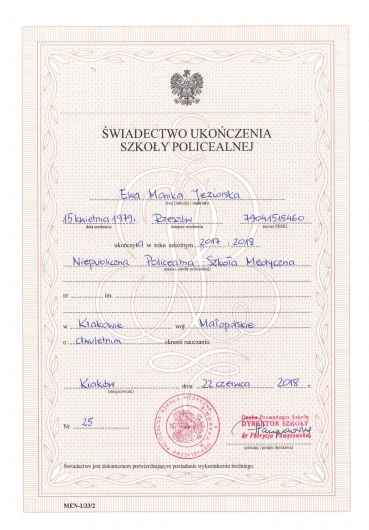 ŚWIADECTWO UKOŃCZENIA
SZKOŁY POLICEALNEJ
Ewa Monika Jeziorska
imię (imiona) i nazwisko
15 kwietnia 1979 r. Rzeszów 79041515460
data urodzenia miejsce urodzenia numer PESEL
ukończyła w roku szkolnym 2017 / 2018
Niepubliczna Policealna Szkoła Medyczna
nazwa szkoły policealnej
nr im.
w Krakowie woj. Małopolskie
o dwuletnim okresie nauczania.
Kraków dnia 22 czerwca 2018 r.
(miejscowość)
Nr 25
Osoba Prowadząca Szkołę
DYREKTOR SZKOŁY
dr Patrycja
(pieczęć i podpis dyrektora)
Świadectwo jest dokumentem potwierdzającym posiadanie wykształcenia średniego.
MEN-I/33/2